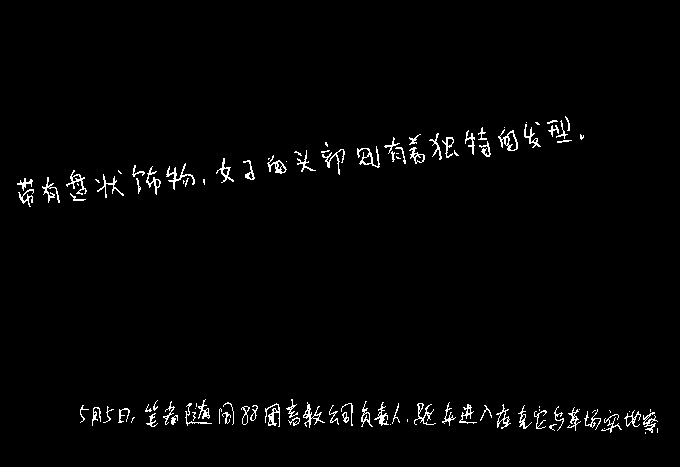 带有盘状饰物,女子的头部则有着独特的发型.
5月5日,笔者随同88团畜牧公司负责人,驱车进入库克它乌草场实地察